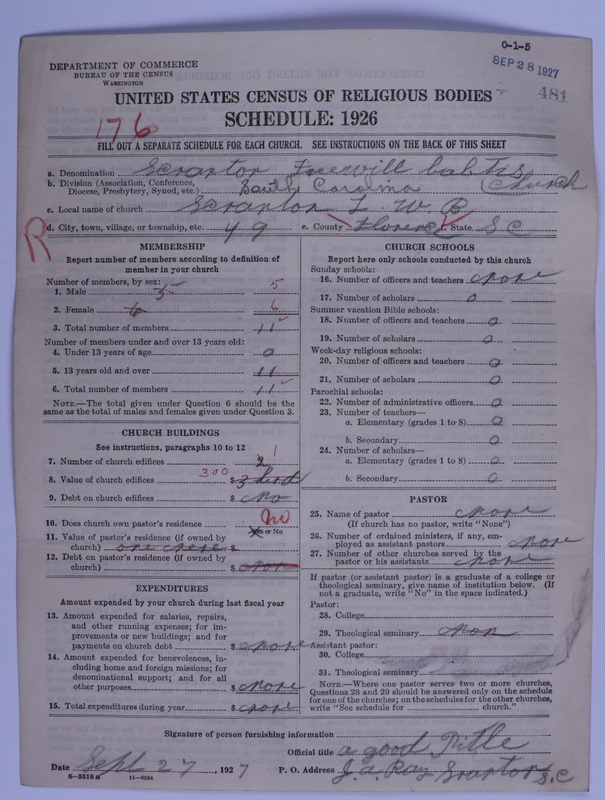 0-1-5
SEP 28 1927
481
DEPARTMENT OF COMMERCE
BUREAU OF THE CENSUS
WASHINGTON
UNITED STATES CENSUS OF RELIGIOUS BODIES
SCHEDULE: 1926
176
FILL OUT A SEPARATE SCHEDULE FOR EACH CHURCH. SEE INSTRUCTIONS ON THE BACK OF THIS SHEET
a. Denomination Scranton Freewill babtis
b. Division (Association, Conference, Diocese, Presbytery, Synod, etc.) South Carolina (Church
c. Local name of church Scranton F. W B
R
d. City, town, village, or township, etc. 49 e. County Florence f. State S C
MEMBERSHIP
Report number of members according to definition of
member in your church
Number of members, by sex:
1. Male 5 5
2. Female 6 6
3. Total number of members 11
Number of members under and over 13 years old:
4. Under 13 years of age 0
5. 13 years old and over 11
6. Total number of members 11
NOTE.—The total given under Question 6 should be
same as the total of males and females given under Question 3.
CHURCH BUILDINGS
See instructions, paragraphs 10 to 12
7. Number of church edifices 1
8. Value of church edifices 300 $ 3
9. Debt on church edifices $ no
10. Does church own pastor's residence no
Yes or No
11. Value of pastor's residence (if owned by
church) $
12. Debt on pastor's residence (if owned by
church) $
EXPENDITURES
Amount expended by your church during last fiscal year
13. Amount expended for salaries, repairs,
and other running expenses; for im-
provements or new buildings; and for
payments on church debt $ none
14. Amount expended for benevolences, in-
cluding home and foreign missions; for
denominational support; and for all
other purposes $ none
15. Total expenditures during year $ none
CHURCH SCHOOLS
Report here only schools conducted by this church
Sunday schools:
16. Number of officers and teachers none
17. Number of scholars 0
Summer vacation Bible schools:
18. Number of officers and teachers 0
19. Number of scholars 0
Week-day religious schools:
20. Number of officers and teachers 0
21. Number of scholars 0
Parochial schools:
22. Number of administrative officers 0
23. Number of teachers—
a. Elementary (grades 1 to 8) 0
b. Secondary 0
24. Number of scholars—
a. Elementary (grades 1 to 8) 0
b. Secondary 0
PASTOR
25. Name of pastor none
(If church has no pastor, write "None")
26. Number of ordained ministers, if any, em-
ployed as assistant pastors none
27. Number of other churches served by the
pastor or his assistants none
If pastor (or assistant pastor) is a graduate of a college or
theological seminary, give name of institution below. (If
not a graduate, write "No" in the space indicated.)
Pastor:
28. College
29. Theological seminary non
Assistant pastor:
30. College
31. Theological seminary
NOTE.—Where one pastor serves two or more churches,
Questions 28 and 29 should be answered only on the schedule
for one of the churches; on the schedules for the other churches,
write "See schedule for church."
Signature of person furnishing information
Official title a good Title
Date Sept 27, 1927 P. O. Address J. a. Ray Scranton S. C
8-3518a 11-9064